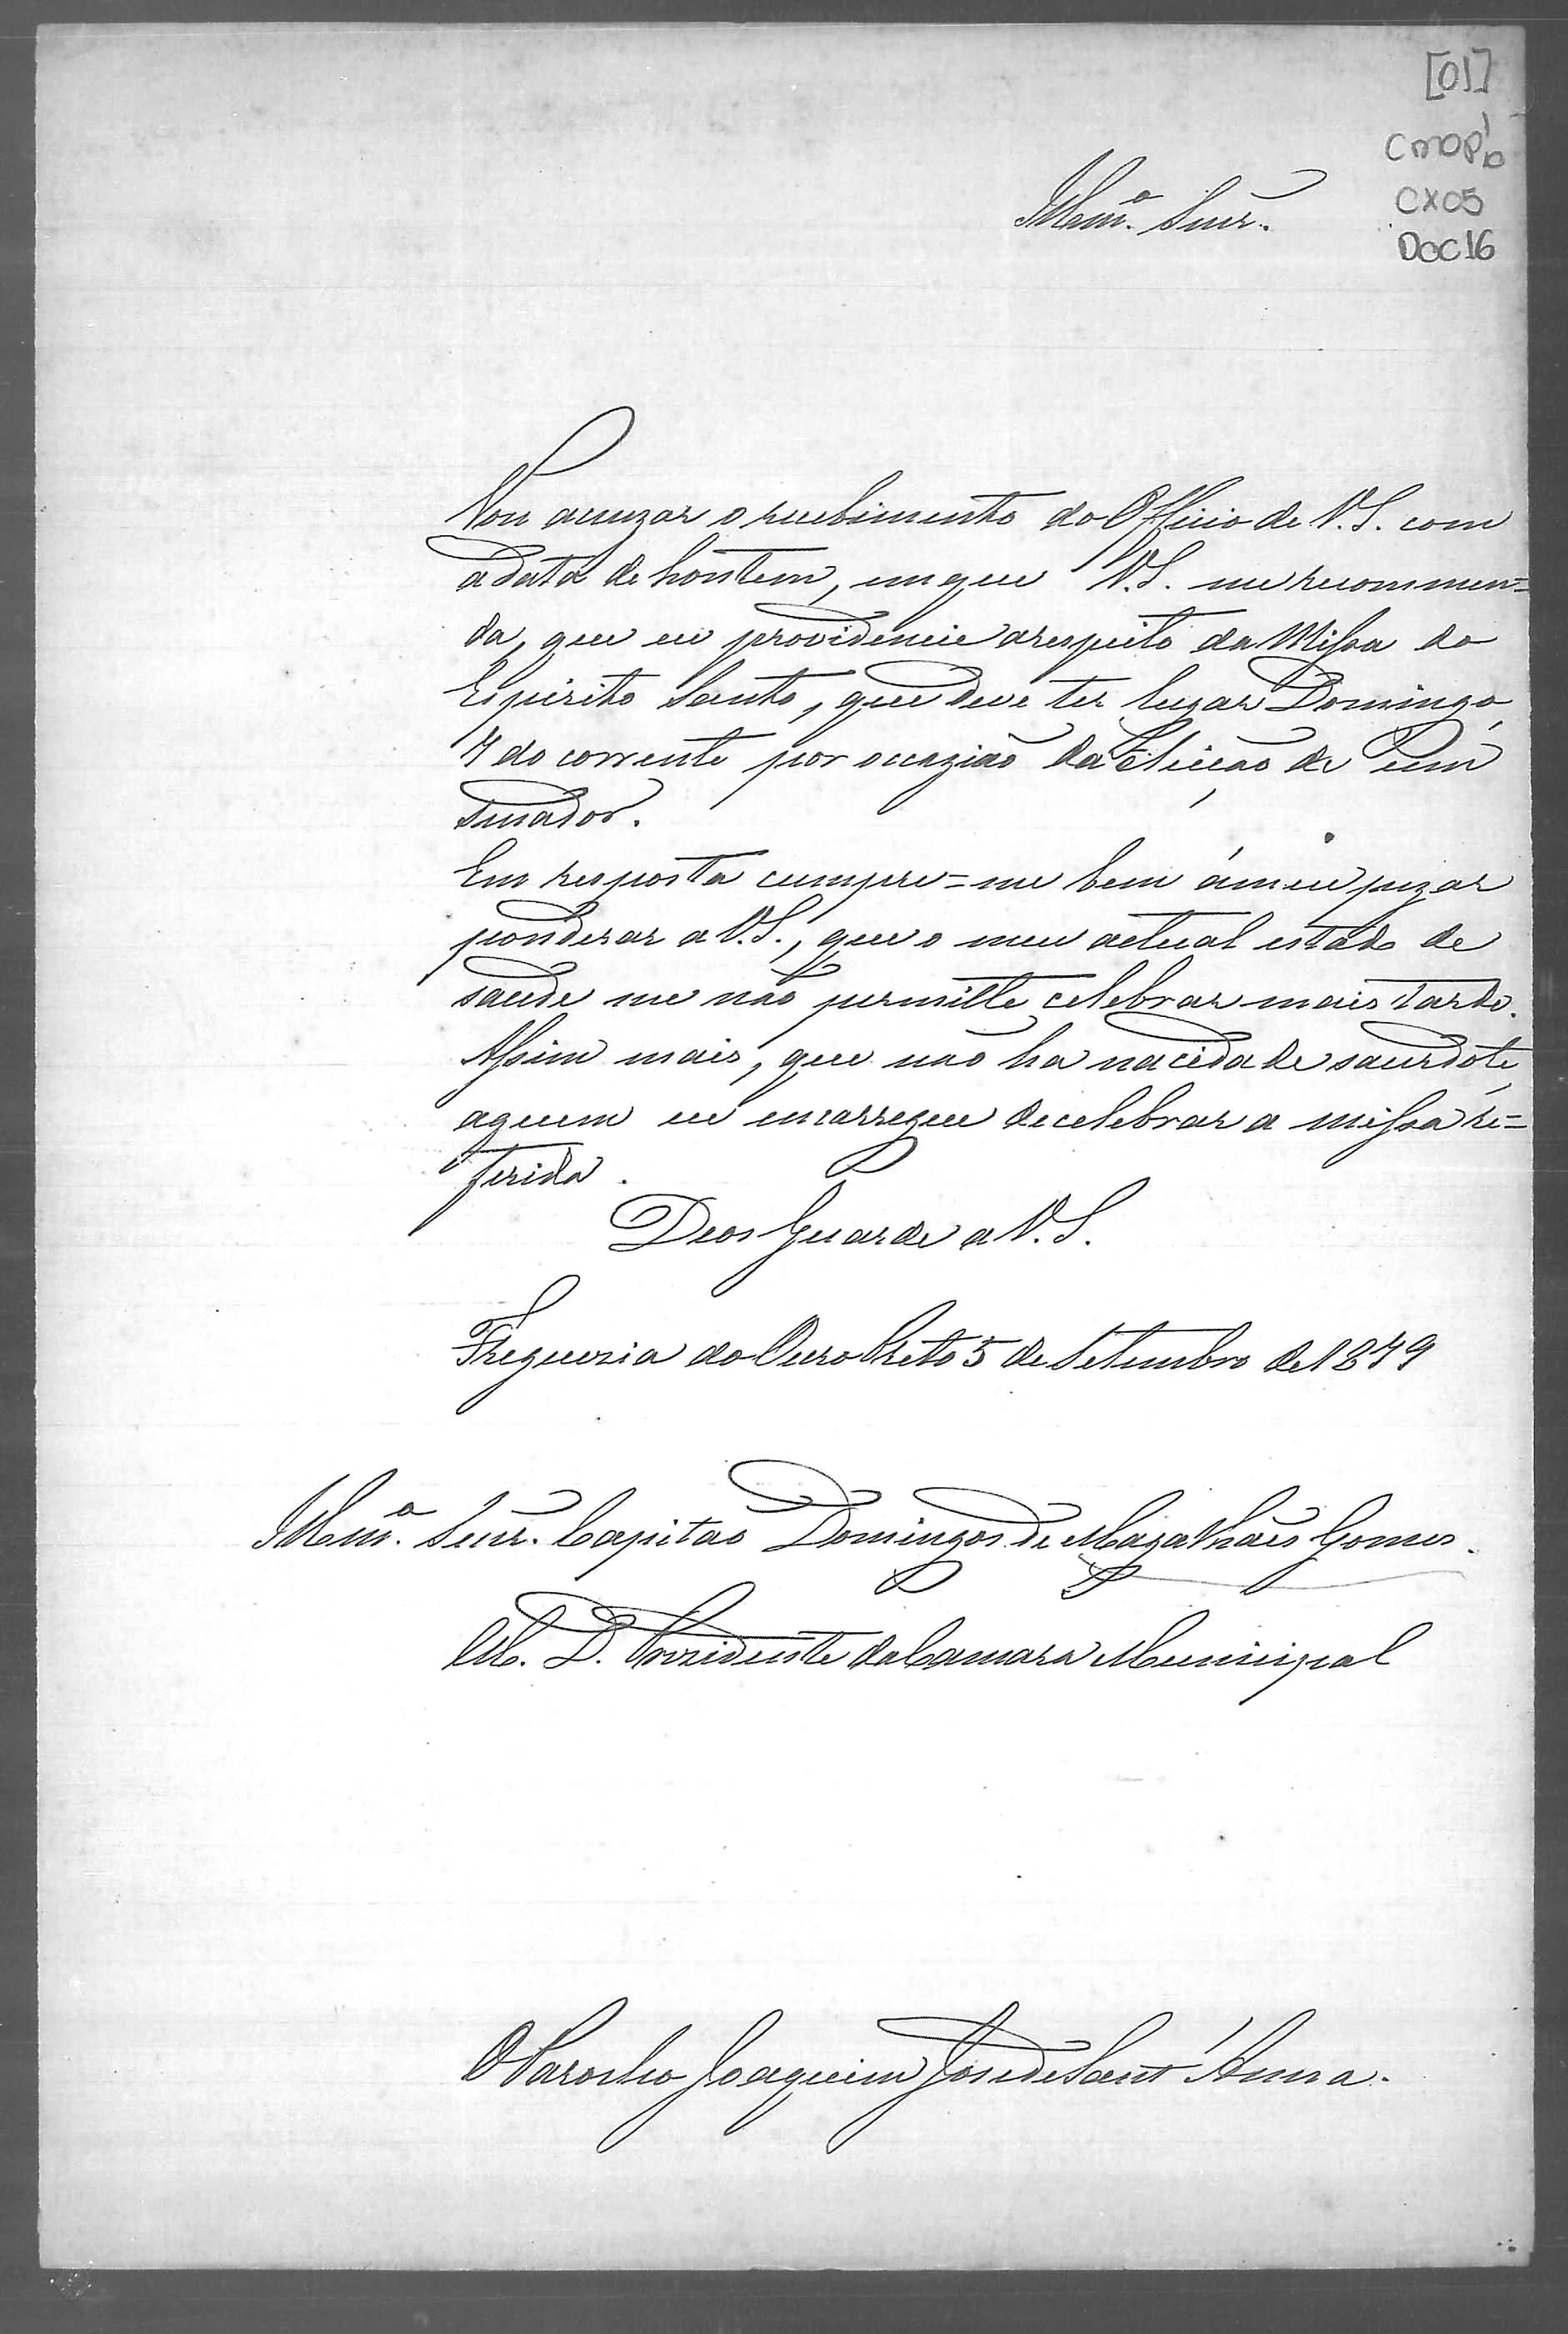 [01]
CMOP
CX05
DOC16
Illmº. Senr.
Vou acuzar o recebimento do Officio de V.S. com
a data de hontem, em que V.S. me recommen=
da, que eu providencie a respeito da Missa do
Espirito Santo, que deve ter lugar Domingo
7 do corrente por occazião da Eleicão de um
Senador.
Em resposta cumpre=me bem á meu pezar
ponderar a V.S., que o meu actual estado de
saude me não permitte celebrar mais tarde.
Assim mais, que não ha na cidade sacerdote
a quem eu encarregue de celebrar a missa re=
ferida.
Deos Guarde a V.S.
Freguezia do Ouro Preto 5 de Setembro de 1879
Illmº. Senr. Capitão Domingos de Magalhães Gomes.
M. D. Prezidente da Camara Municipal
O Parocho Joaquim José de Sant'Anna.